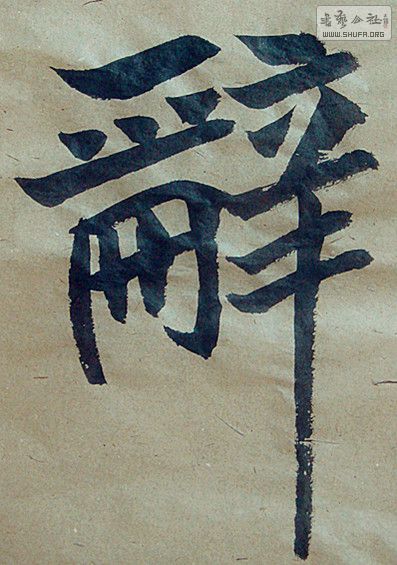 辭
書藝公社
WWW.SHUFA.ORG